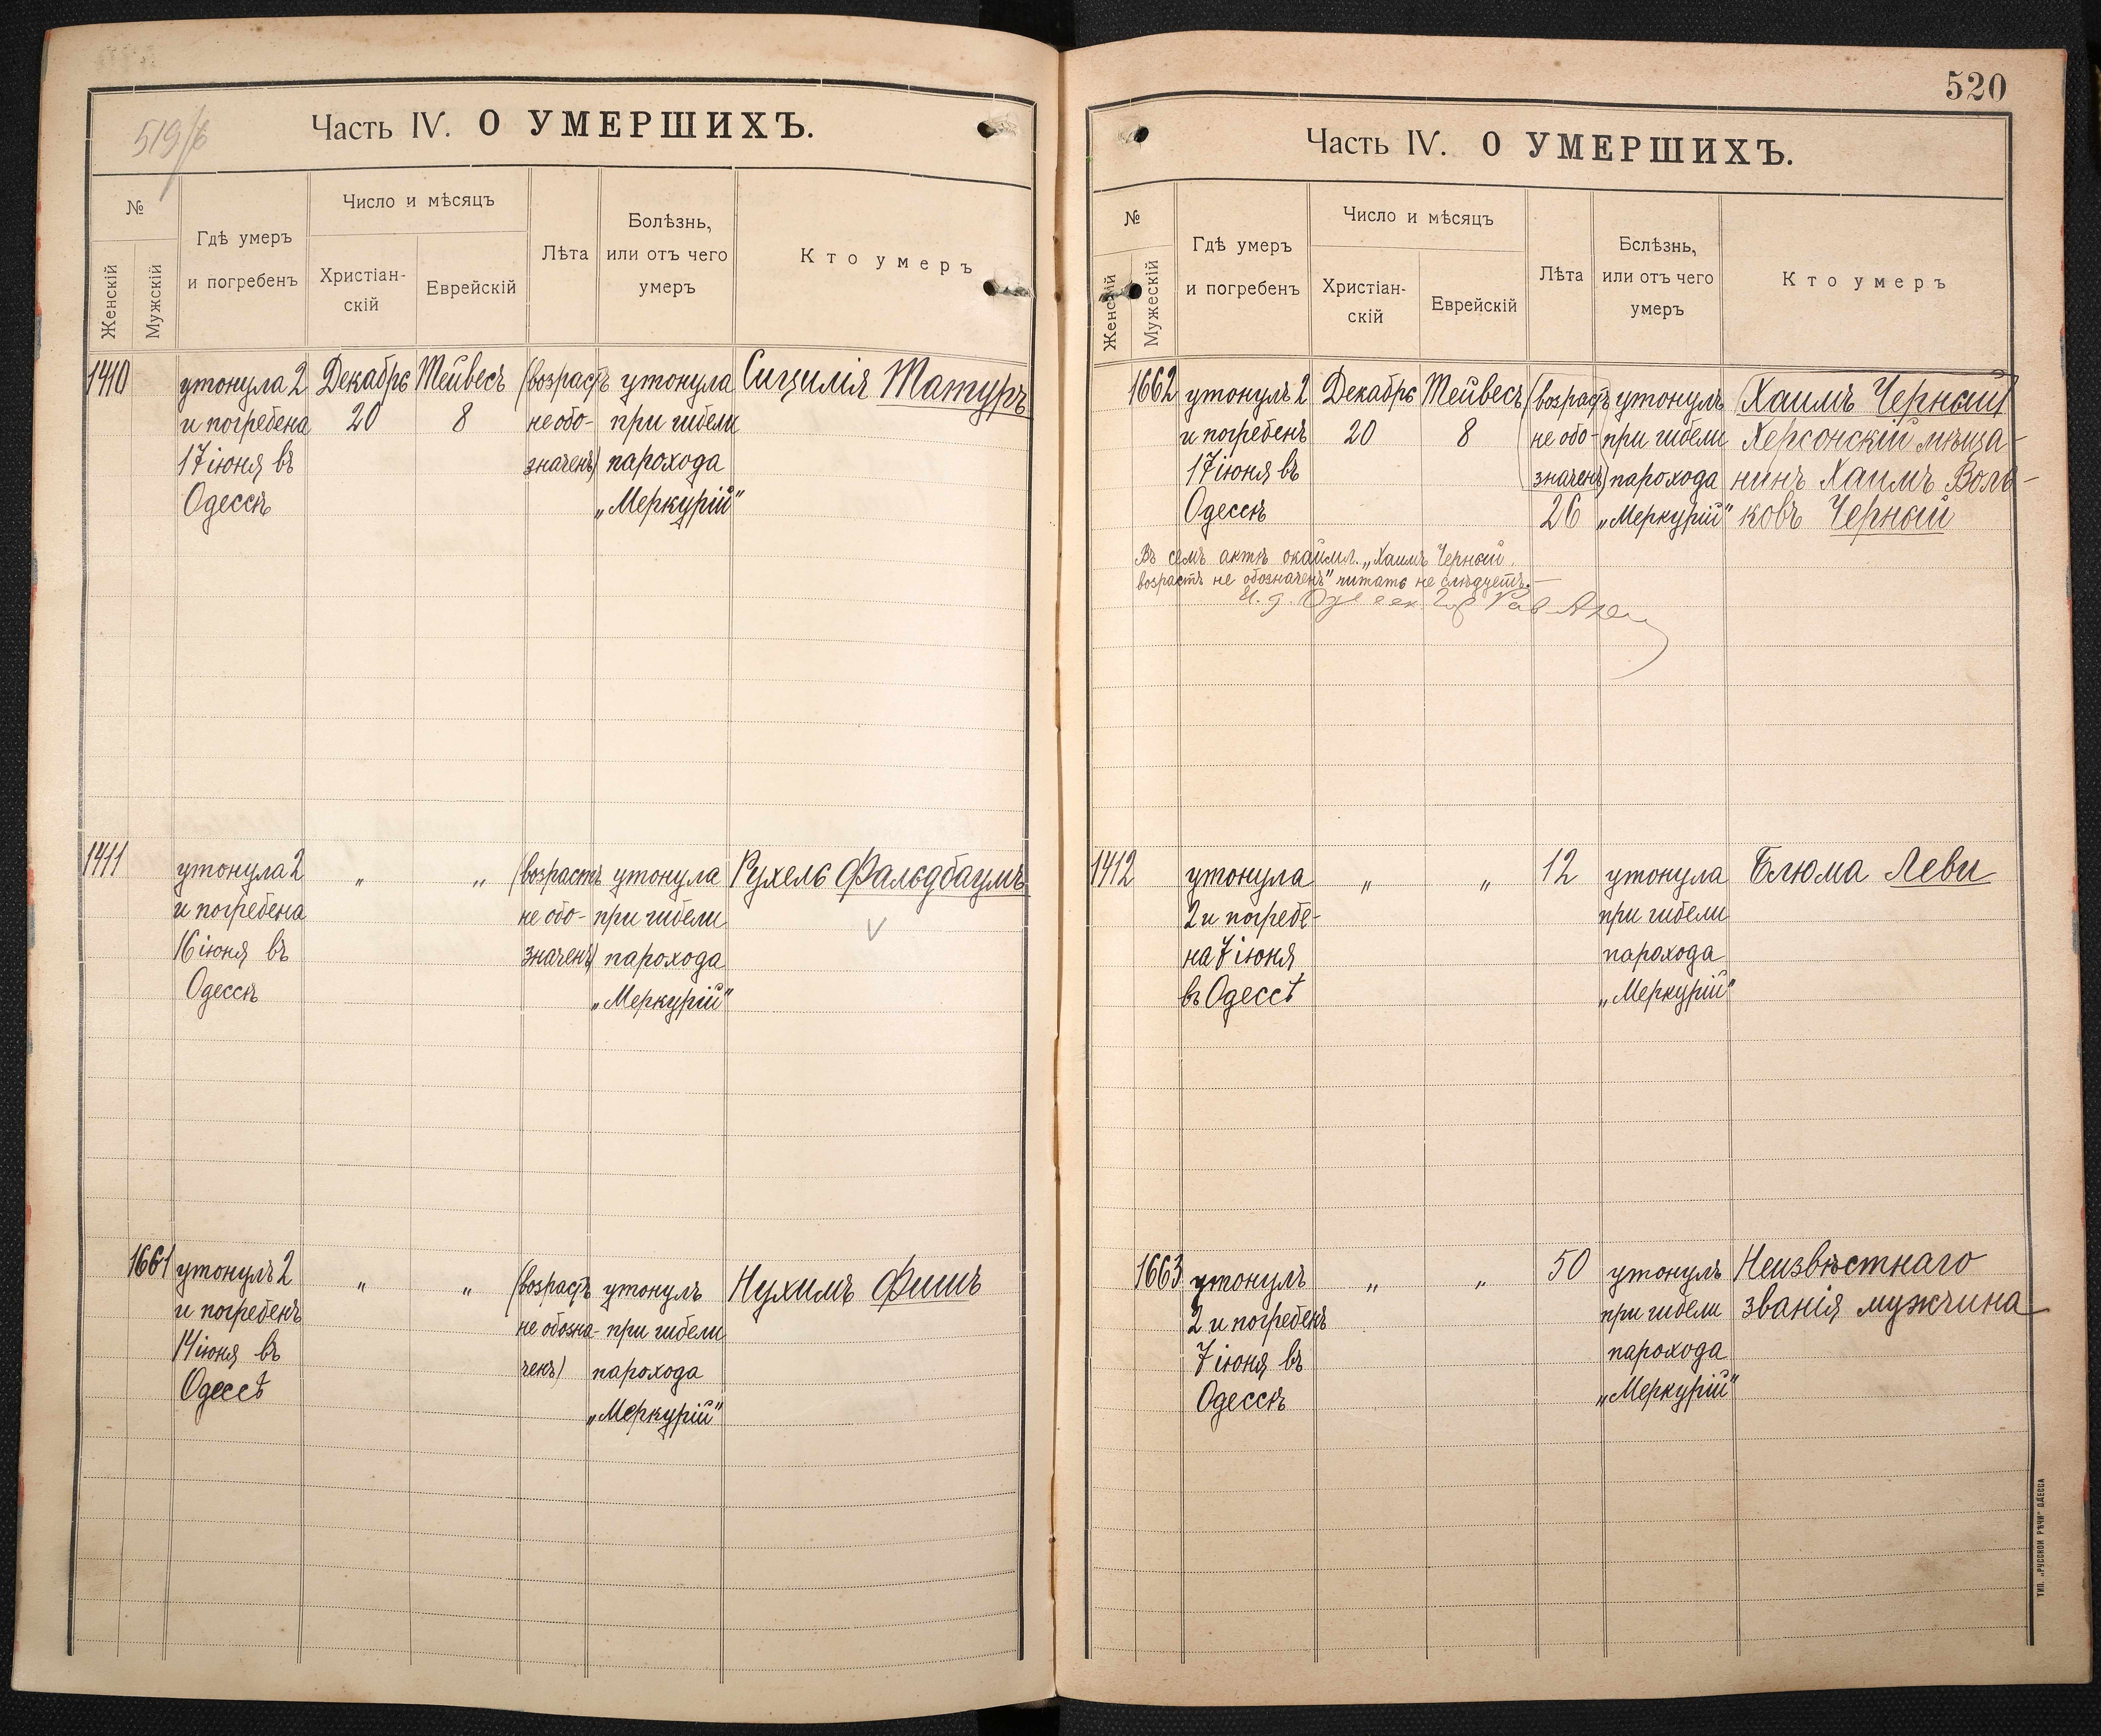 519/б
Часть IV. О УМЕРШИХЪ.
№
Женскій
Мужскій
Гдѣ умеръ
и погребенъ
Число и мѣсяцъ
Христіан-
скій
Еврейскій
Лѣта
Болѣзнь,
или отъ чего
умеръ
Кто умеръ
1410 утонула 2 Декабрь Тейвесъ (возрастъ утонула Сицилія Матуръ
и погребена 20 8 не обо- при гибели
17 іюня въ значенъ) парохода
Одессѣ „Меркурій"
1411 утонула 2 „ „ (возрастъ утонула Рухель Фальдбаумъ
и погребена не обо- при гибели
16 іюня въ значенъ) парохода
Одессѣ „Меркурій"
1661 утонулъ 2 „ „ (возрастъ утонулъ Нухимъ Фишъ
и погребенъ не обозна- при гибели
14 іюня въ ченъ) парохода
Одессѣ „Меркурій"
520
Часть IV. О УМЕРШИХЪ.
№
Женскій
Мужескій
Гдѣ умеръ
и погребенъ
Число и мѣсяцъ
Христіан-
скій
Еврейскій
Лѣта
Бслѣзнь,
или отъ чего
умеръ
Кто умеръ
1662 утонулъ 2 Декабрь Тейвесъ (возрастъ утонулъ Хаимъ Черный
и погребенъ 20 8 не обо- при гибели Херсонскій мѣща-
17 іюня въ значенъ) парохода нинъ Хаимъ Воль-
Одессѣ 26 „Меркурій" ковъ Черный
Въ семъ актѣ окаймл. „Хаимъ Черный
возрастъ не обозначенъ" читать не слѣдуетъ.
И. д. Одесск. Гор. Рав.
1412 утонула „ „ 12 утонула Блюма Леви
2 и погребе- при гибели
на 7 іюня парохода
въ Одессѣ „Меркурій"
1663 утонулъ „ „ 50 утонулъ Неизвѣстнаго
2 и погребенъ при гибели званія мужчина
7 іюня въ парохода
Одессѣ „Меркурій"
ТИП. „РУССКОЙ РѢЧИ" ОДЕССА